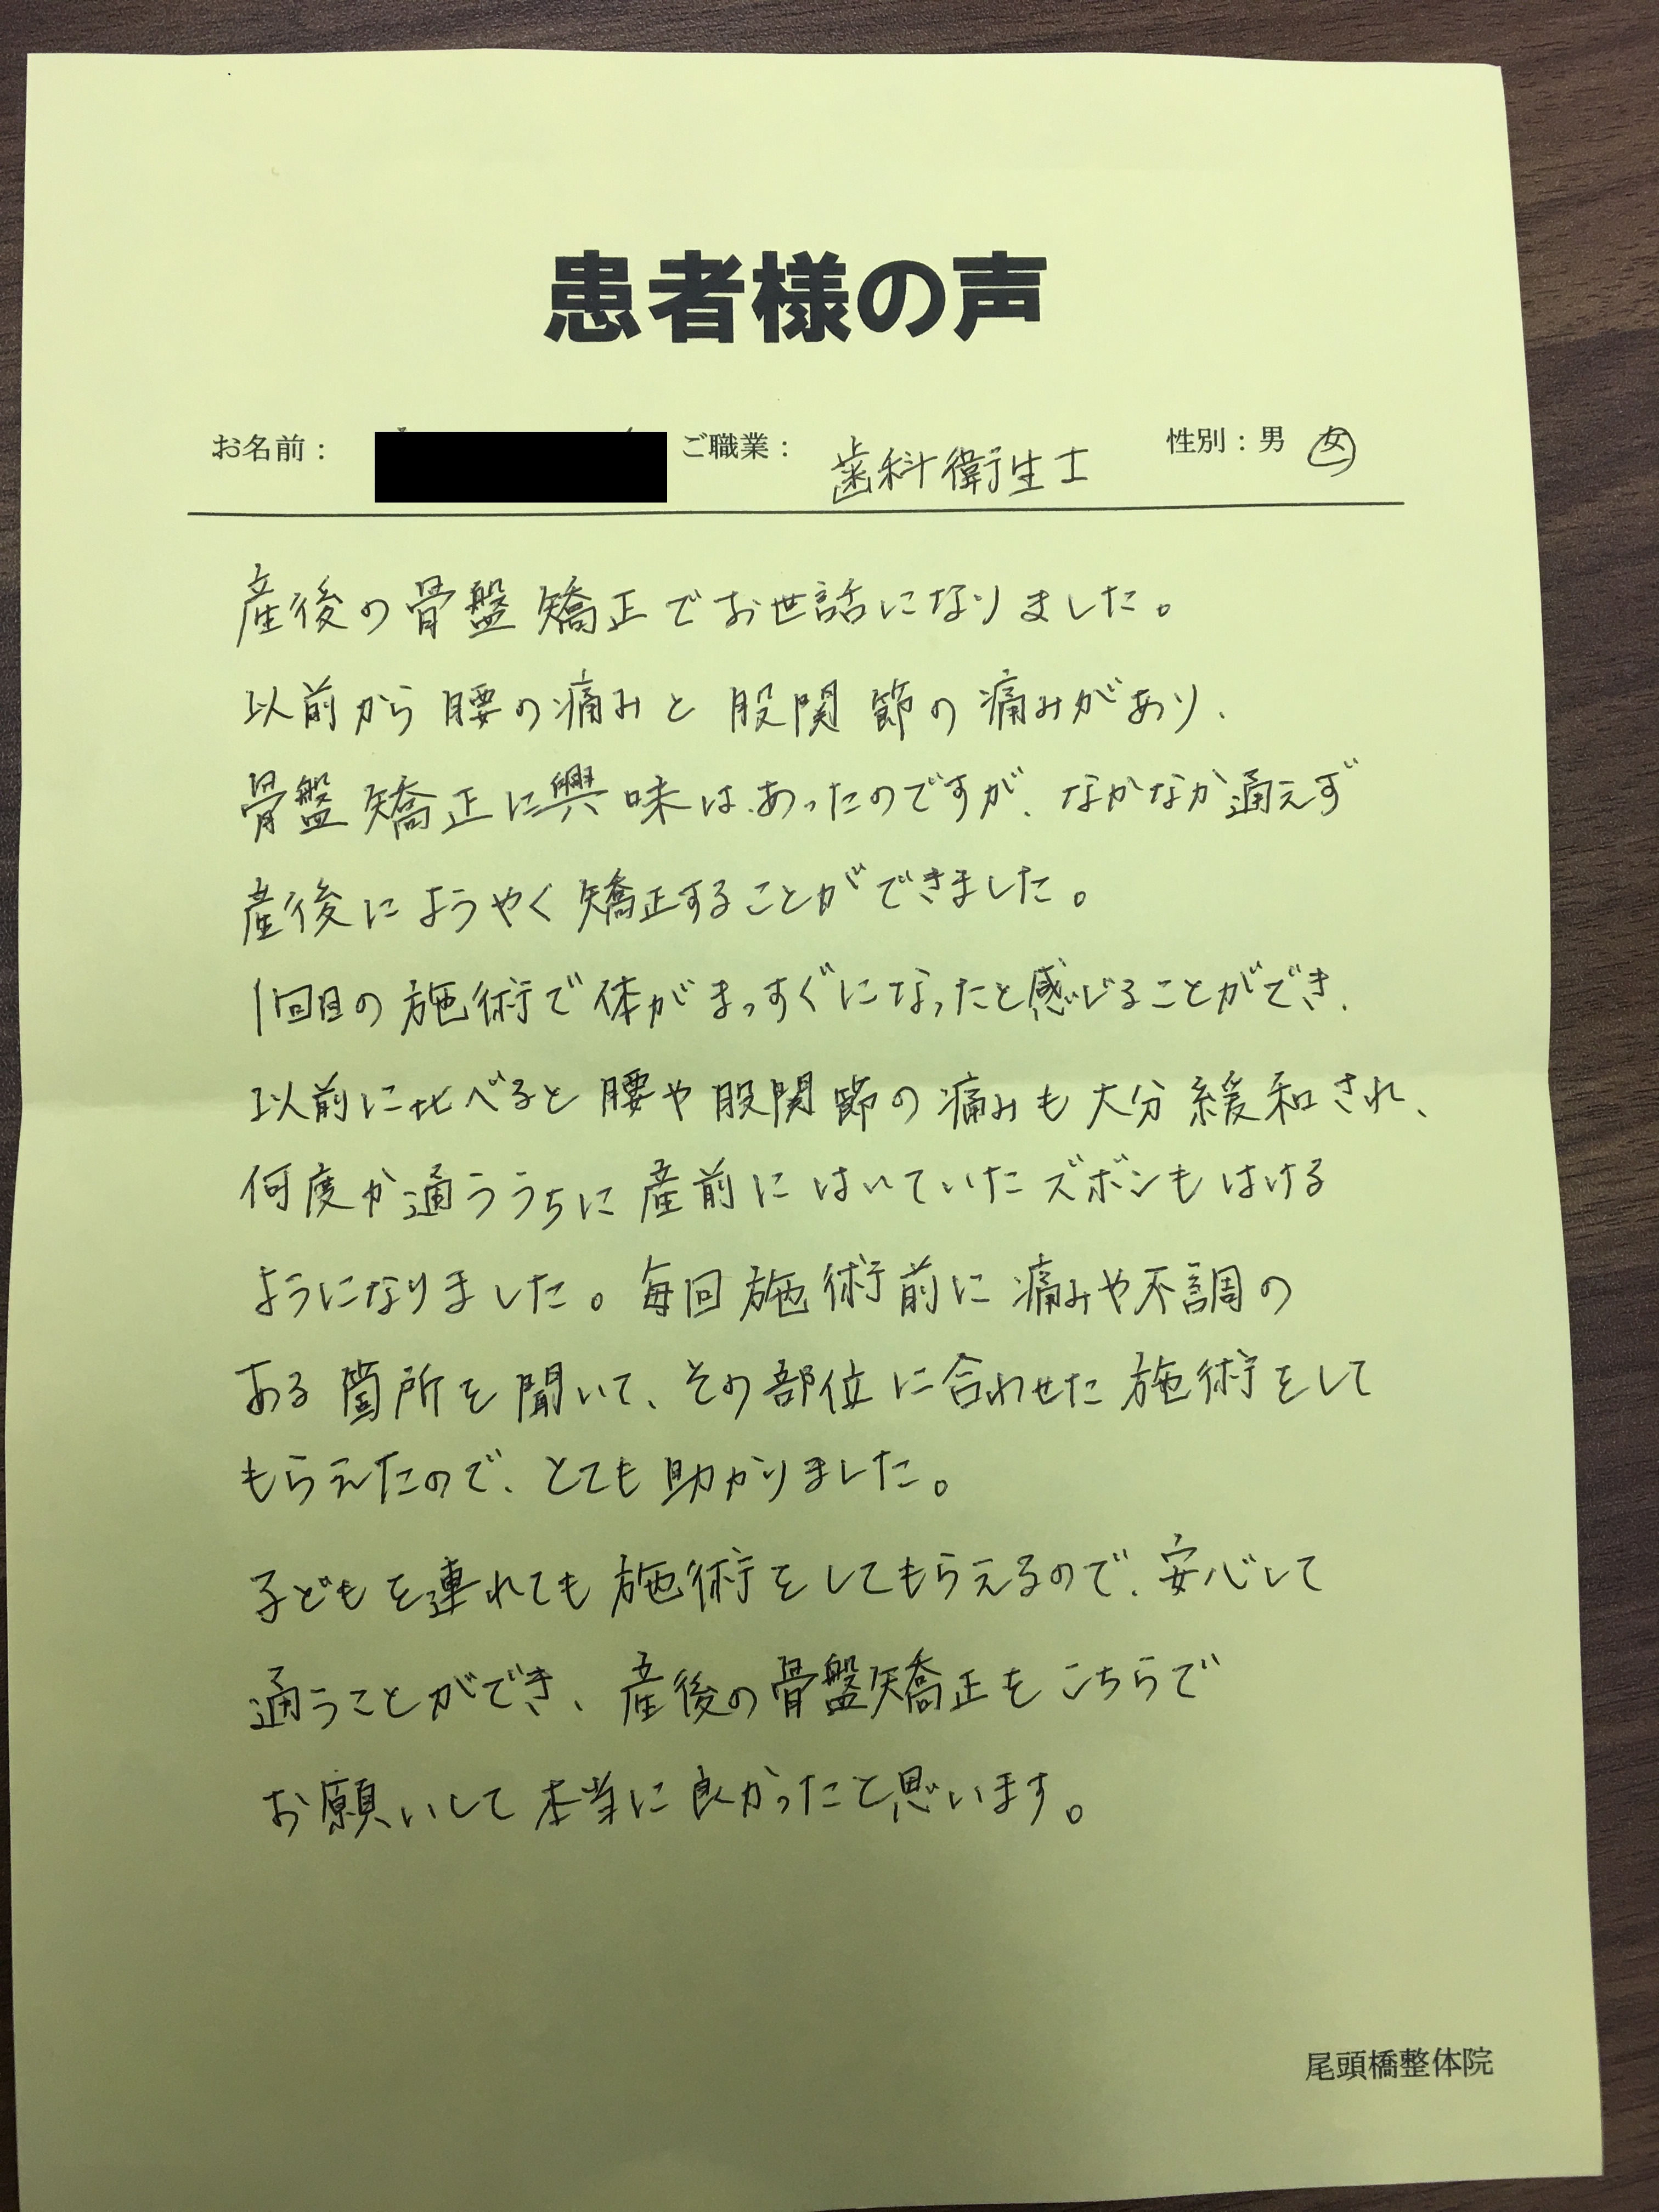 患者様の声
お名前： ご職業： 歯科衛生士 性別：男 女
産後の骨盤矯正でお世話になりました。
以前から腰の痛みと股関節の痛みがあり、
骨盤矯正に興味はあったのですが、なかなか通えず
産後にようやく矯正することができました。
1回目の施術で体がまっすぐになったと感じることができ、
以前に比べると腰や股関節の痛みも大分緩和され、
何度か通ううちに産前にはいていたズボンもはける
ようになりました。毎回施術前に痛みや不調の
ある箇所を聞いて、その部位に合わせた施術をして
もらえたので、とても助かりました。
子どもを連れても施術をしてもらえるので、安心して
通うことができ、産後の骨盤矯正をこちらで
お願いして本当に良かったと思います。
尾頭橋整体院